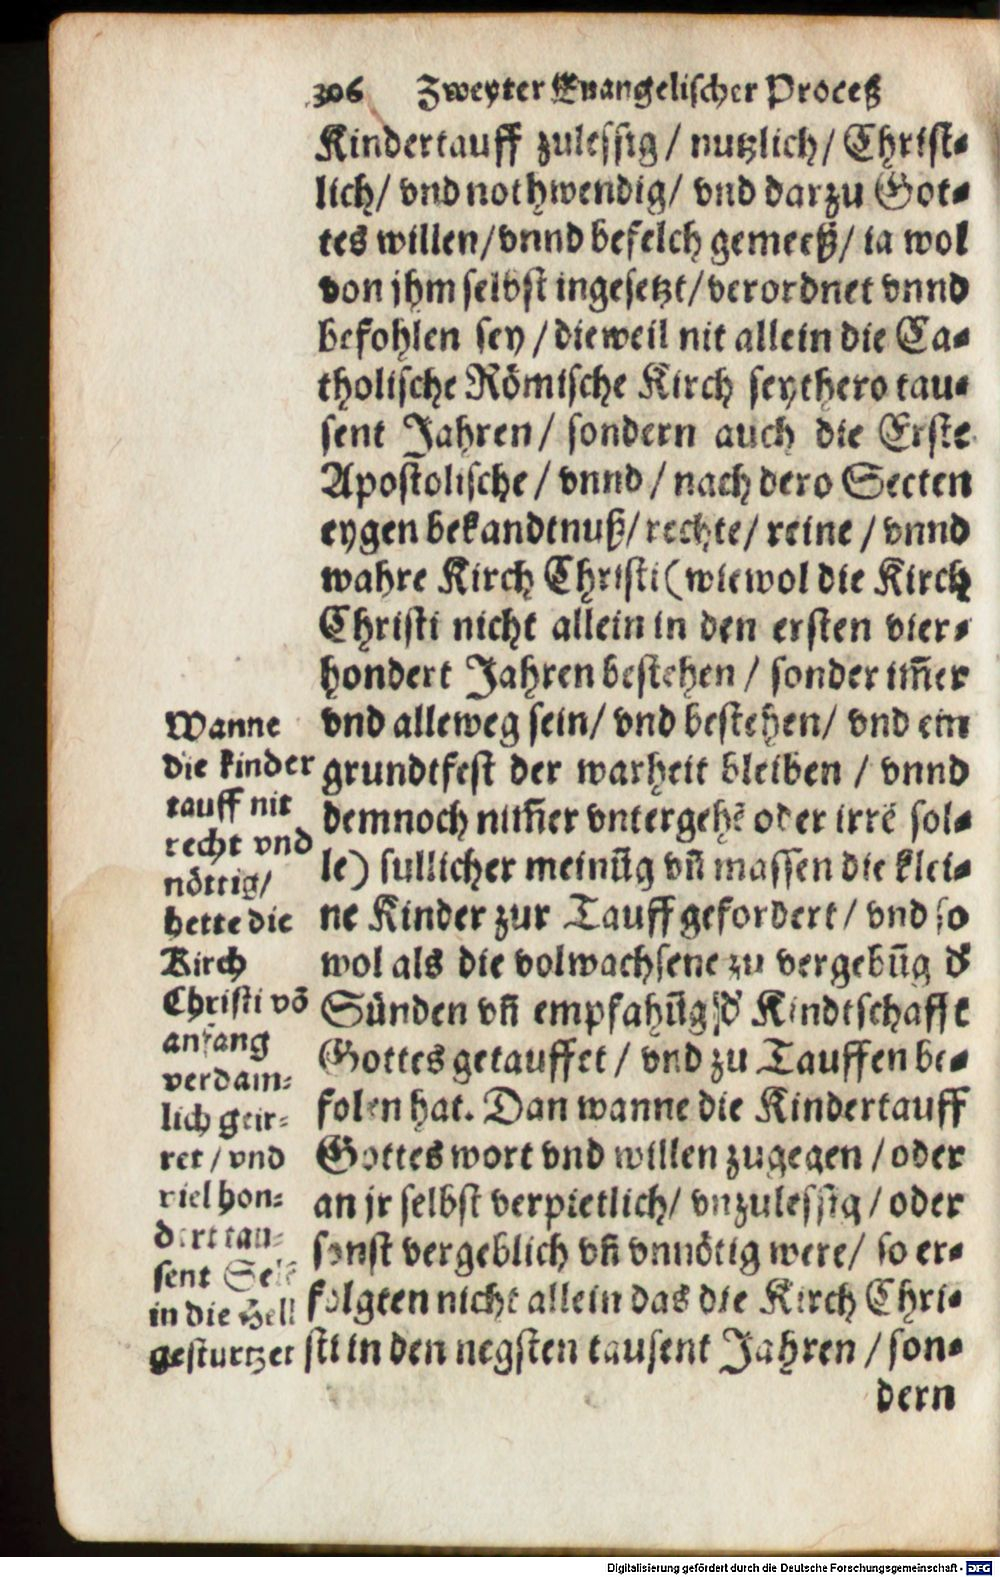 306 Zweyter Euangelischer Proceß
Kindertauff zulessig / nutzlich / Christ⸗
lich / vnd nothwendig / vnd darzu Got⸗
tes willen / vnnd befelch gemeeß / ia wol
von jhm selbst ingesetzt / verordnet vnnd
befohlen sey / dieweil nit allein die Ca⸗
tholische Römische Kirch seythero tau⸗
sent Jahren / sondern auch die Erste
Apostolische / vnnd / nach dero Secten
eygen bekandtnuß / rechte / reine / vnnd
wahre Kirch Christi (wiewol die Kirch
Christi nicht allein in den ersten vier⸗
hondert Jahren bestehen / sonder im̃er
vnd alleweg sein / vnd bestehen / vnd ein
grundtfest der warheit bleiben / vnnd
demnoch nim̃er vntergehẽ oder irrẽ sol⸗
le) sullicher meinũg vñ massen die klei⸗
ne Kinder zur Tauff gefordert / vnd so
wol als die volwachsene zu vergebũg d̕
Sünden vñ empfahũg d̕ Kindtschafft
Gottes getauffet / vnd zu Tauffen be⸗
folen hat. Dan wanne die Kindertauff
Gottes wort vnd willen zugegen / oder
an jr selbst verpietlich / vnzulessig / oder
sonst vergeblich vñ vnnötig were / so er⸗
folgten nicht allein das die Kirch Chri⸗
sti in den negsten tausent Jahren / son⸗
dern
Wanne
die kinder
tauff nit
recht vnd
nöttig /
hette die
Kirch
Christi võ
anfang
verdam⸗
lich geir⸗
ret / vnd
viel hon⸗
dert tau⸗
sent Sele
in die Hell
gesturtzet
Digitalisierung gefördert durch die Deutsche Forschungsgemeinschaft - DFG